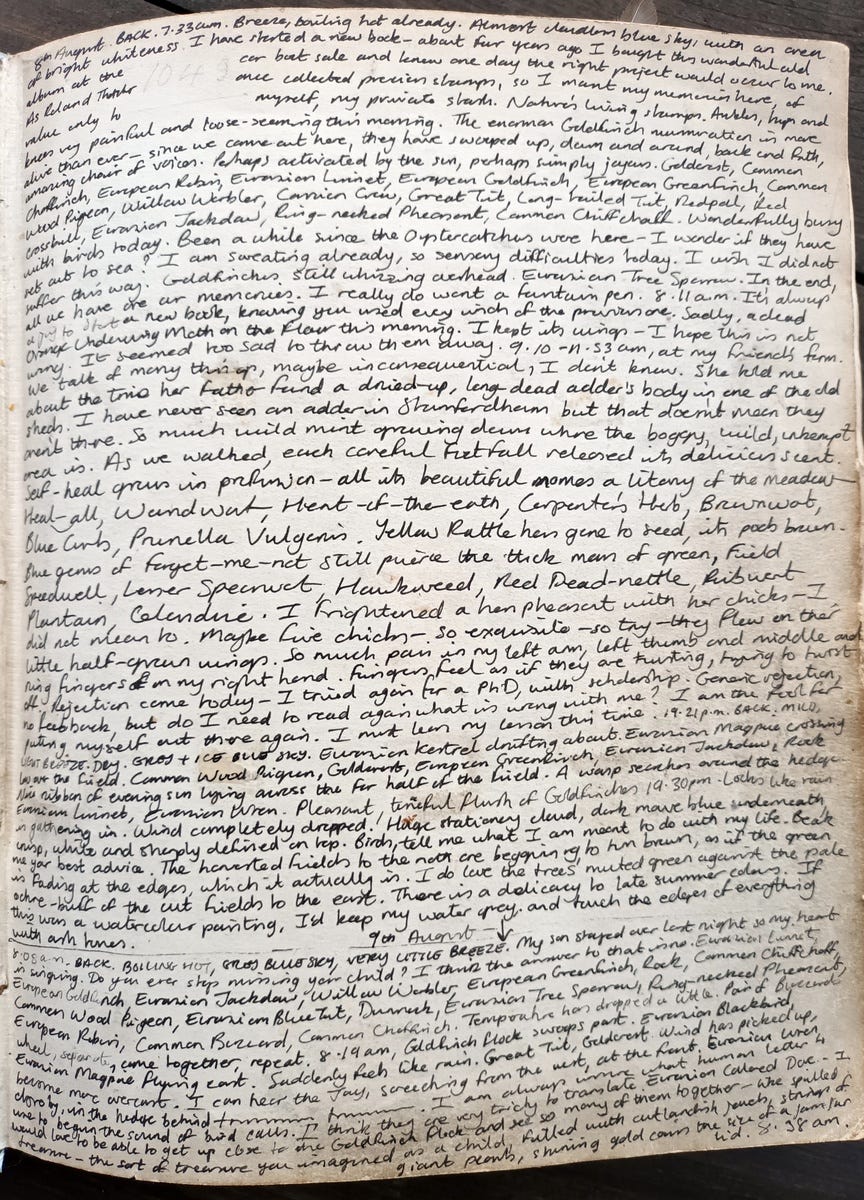 8th August. BACK. 7.33am. Breeze, boiling hot already. Almost cloudless blue sky, with an area
of bright whiteness. I have started a new book - about four years ago I bought this wonderful old
album at the car boot sale and knew one day the right project would occur to me.
As Roland Thatcher once collected precious stamps, so I want my memories here, of
value only to myself, my private stash. Nature's living stamps. Ankles, hips and
knees very painful and loose-seeming this morning. The enormous Goldfinch murmuration is more
alive than ever - since we came out here, they have swooped up, down and around, back and forth,
amazing choir of voices. Perhaps activated by the sun, perhaps simply joyous. Goldcrest, Common
Chaffinch, European Robin, Eurasian Linnet, European Goldfinch, European Greenfinch, Common
Wood Pigeon, Willow Warbler, Carrion Crow, Great Tit, Long-tailed Tit, Redpoll, Red
Crossbill, Eurasian Jackdaw, Ring-necked Pheasant, Common Chiffchaff. Wonderfully busy
with birds today. Been a while since the Oystercatchers were here - I wonder if they have
set out to sea? I am sweating already, so sensory difficulties today. I wish I did not
suffer this way. Goldfinches still whizzing overhead. Eurasian Tree Sparrow. In the end,
all we have are our memories. I really do want a fountain pen. 8.11am. It's always
a joy to start a new book, knowing you used every inch of the previous one. Sadly, a dead
Orange Underwing Moth on the floor this morning. I kept its wings - I hope this is not
wrong. It seemed too sad to throw them away. 9.10-11.53am, at my friend's farm.
We talk of many things, maybe inconsequential, I don't know. She told me
about the time her father found a dried-up, long-dead adder's body in one of the old
sheds. I have never seen an adder in Stamfordham but that doesn't mean they
aren't there. So much wild mint growing down where the boggy, wild, unkempt
area is. As we walked, each careful footfall released its delicious scent.
Self-heal grows in profusion - all its beautiful names a litany of the meadow
Heal-all, Woundwort, Heart-of-the-earth, Carpenter's Herb, Brownwort,
Blue Curls, Prunella Vulgaris. Yellow Rattle has gone to seed, its pods brown.
Blue gems of forget-me-not still pierce the thick mass of green, Field
Speedwell, Lesser Spearwort, Hawkweed, Red Dead-nettle, Ribwort
Plantain, Celandine. I frightened a hen pheasant with her chicks - I
did not mean to. Maybe five chicks - so exquisite - so tiny - they flew on their
little half-grown wings. So much pain in my left arm, left thumb and middle and
ring fingers on my right hand. Fingers feel as if they are twisting, trying to twist
off. Rejection came today - I tried again for a PhD, with scholarship. Generic rejection,
no feedback, but do I need to read again what is wrong with me? I am the fool for
putting myself out there again. I must learn my lesson this time. 19.21p.m. BACK. MILD,
LIGHT BREEZE. DRY. GREY + ICE BLUE SKY. Eurasian Kestrel drifting about. Eurasian Magpie crossing
low over the field. Common Wood Pigeon, Goldcrest, European Greenfinch, Eurasian Jackdaw, Rook
Nice ribbon of evening sun lying across the far half of the field. A wasp searches around the hedge.
Eurasian Linnet, Eurasian Wren. Pleasant, tuneful flush of Goldfinches 19.30pm. Looks like rain
is gathering in. Wind completely dropped. Huge stationary cloud, dark mauve blue underneath
crisp, white and sharply defined on top. Birds, tell me what I am meant to do with my life. Beak
me your best advice. The harvested fields to the north are beginning to turn brown, as if the green
is fading at the edges, which it actually is. I do love the trees' muted green against the pale
ochre-buff of the cut fields to the east. There is a delicacy to late summer colours. If
this was a watercolour painting, I'd keep my water grey and touch the edges of everything
with ash tones.
9th August
8.08a.m. BACK. BOILING HOT, GREY BLUE SKY, VERY LITTLE BREEZE. My son stayed over last night so my heart
is singing. Do you ever stop missing your child? I think the answer to that is no. Eurasian Linnet,
European Goldfinch, Eurasian Jackdaw, Willow Warbler, European Greenfinch, Rook, Common Chiffchaff,
Common Wood Pigeon, Eurasian Blue Tit, Dunnock, Eurasian Tree Sparrow, Ring-necked Pheasant,
European Robin, Common Buzzard, Common Chaffinch. Temperature has dropped a little. Pair of Buzzards
wheel, separate, come together, repeat. 8.19am, Goldfinch flock swoops past. Eurasian Blackbird,
Eurasian Magpie flying east. Suddenly feels like rain. Great Tit, Goldcrest. Wind has picked up,
become more overcast. I can hear the Jay, screeching from the west, at the front. Eurasian Wren,
close by, in the hedge behind. I am always unsure what human letter to
use to begin the sound of bird calls. I think they are very tricky to translate. Eurasian Collared Dove. - I
would love to be able to get up close to the Goldfinch flock and see so many of them together - like spilled
treasure - the sort of treasure you imagined as a child, filled with outlandish jewels, strings of
giant pearls, shining gold coins the size of a jam jar
lid. 8.38am.